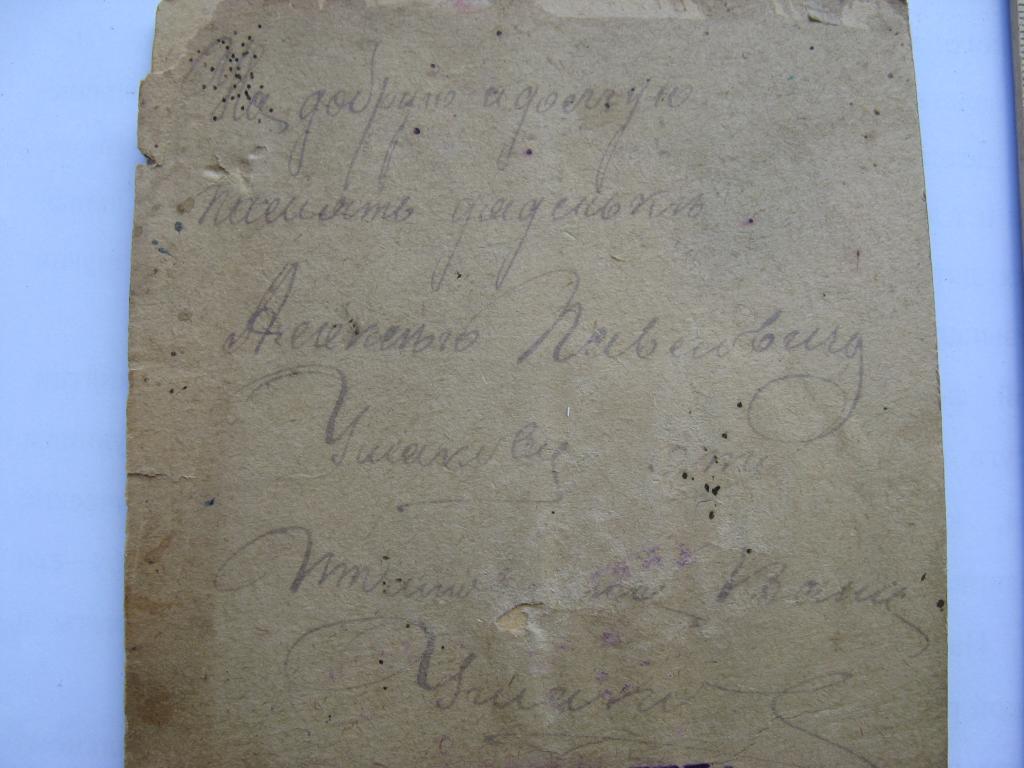 На добрую и долгую
память дяденьке
Алексею Павловичу
Ушакову от
Вани
Ушако